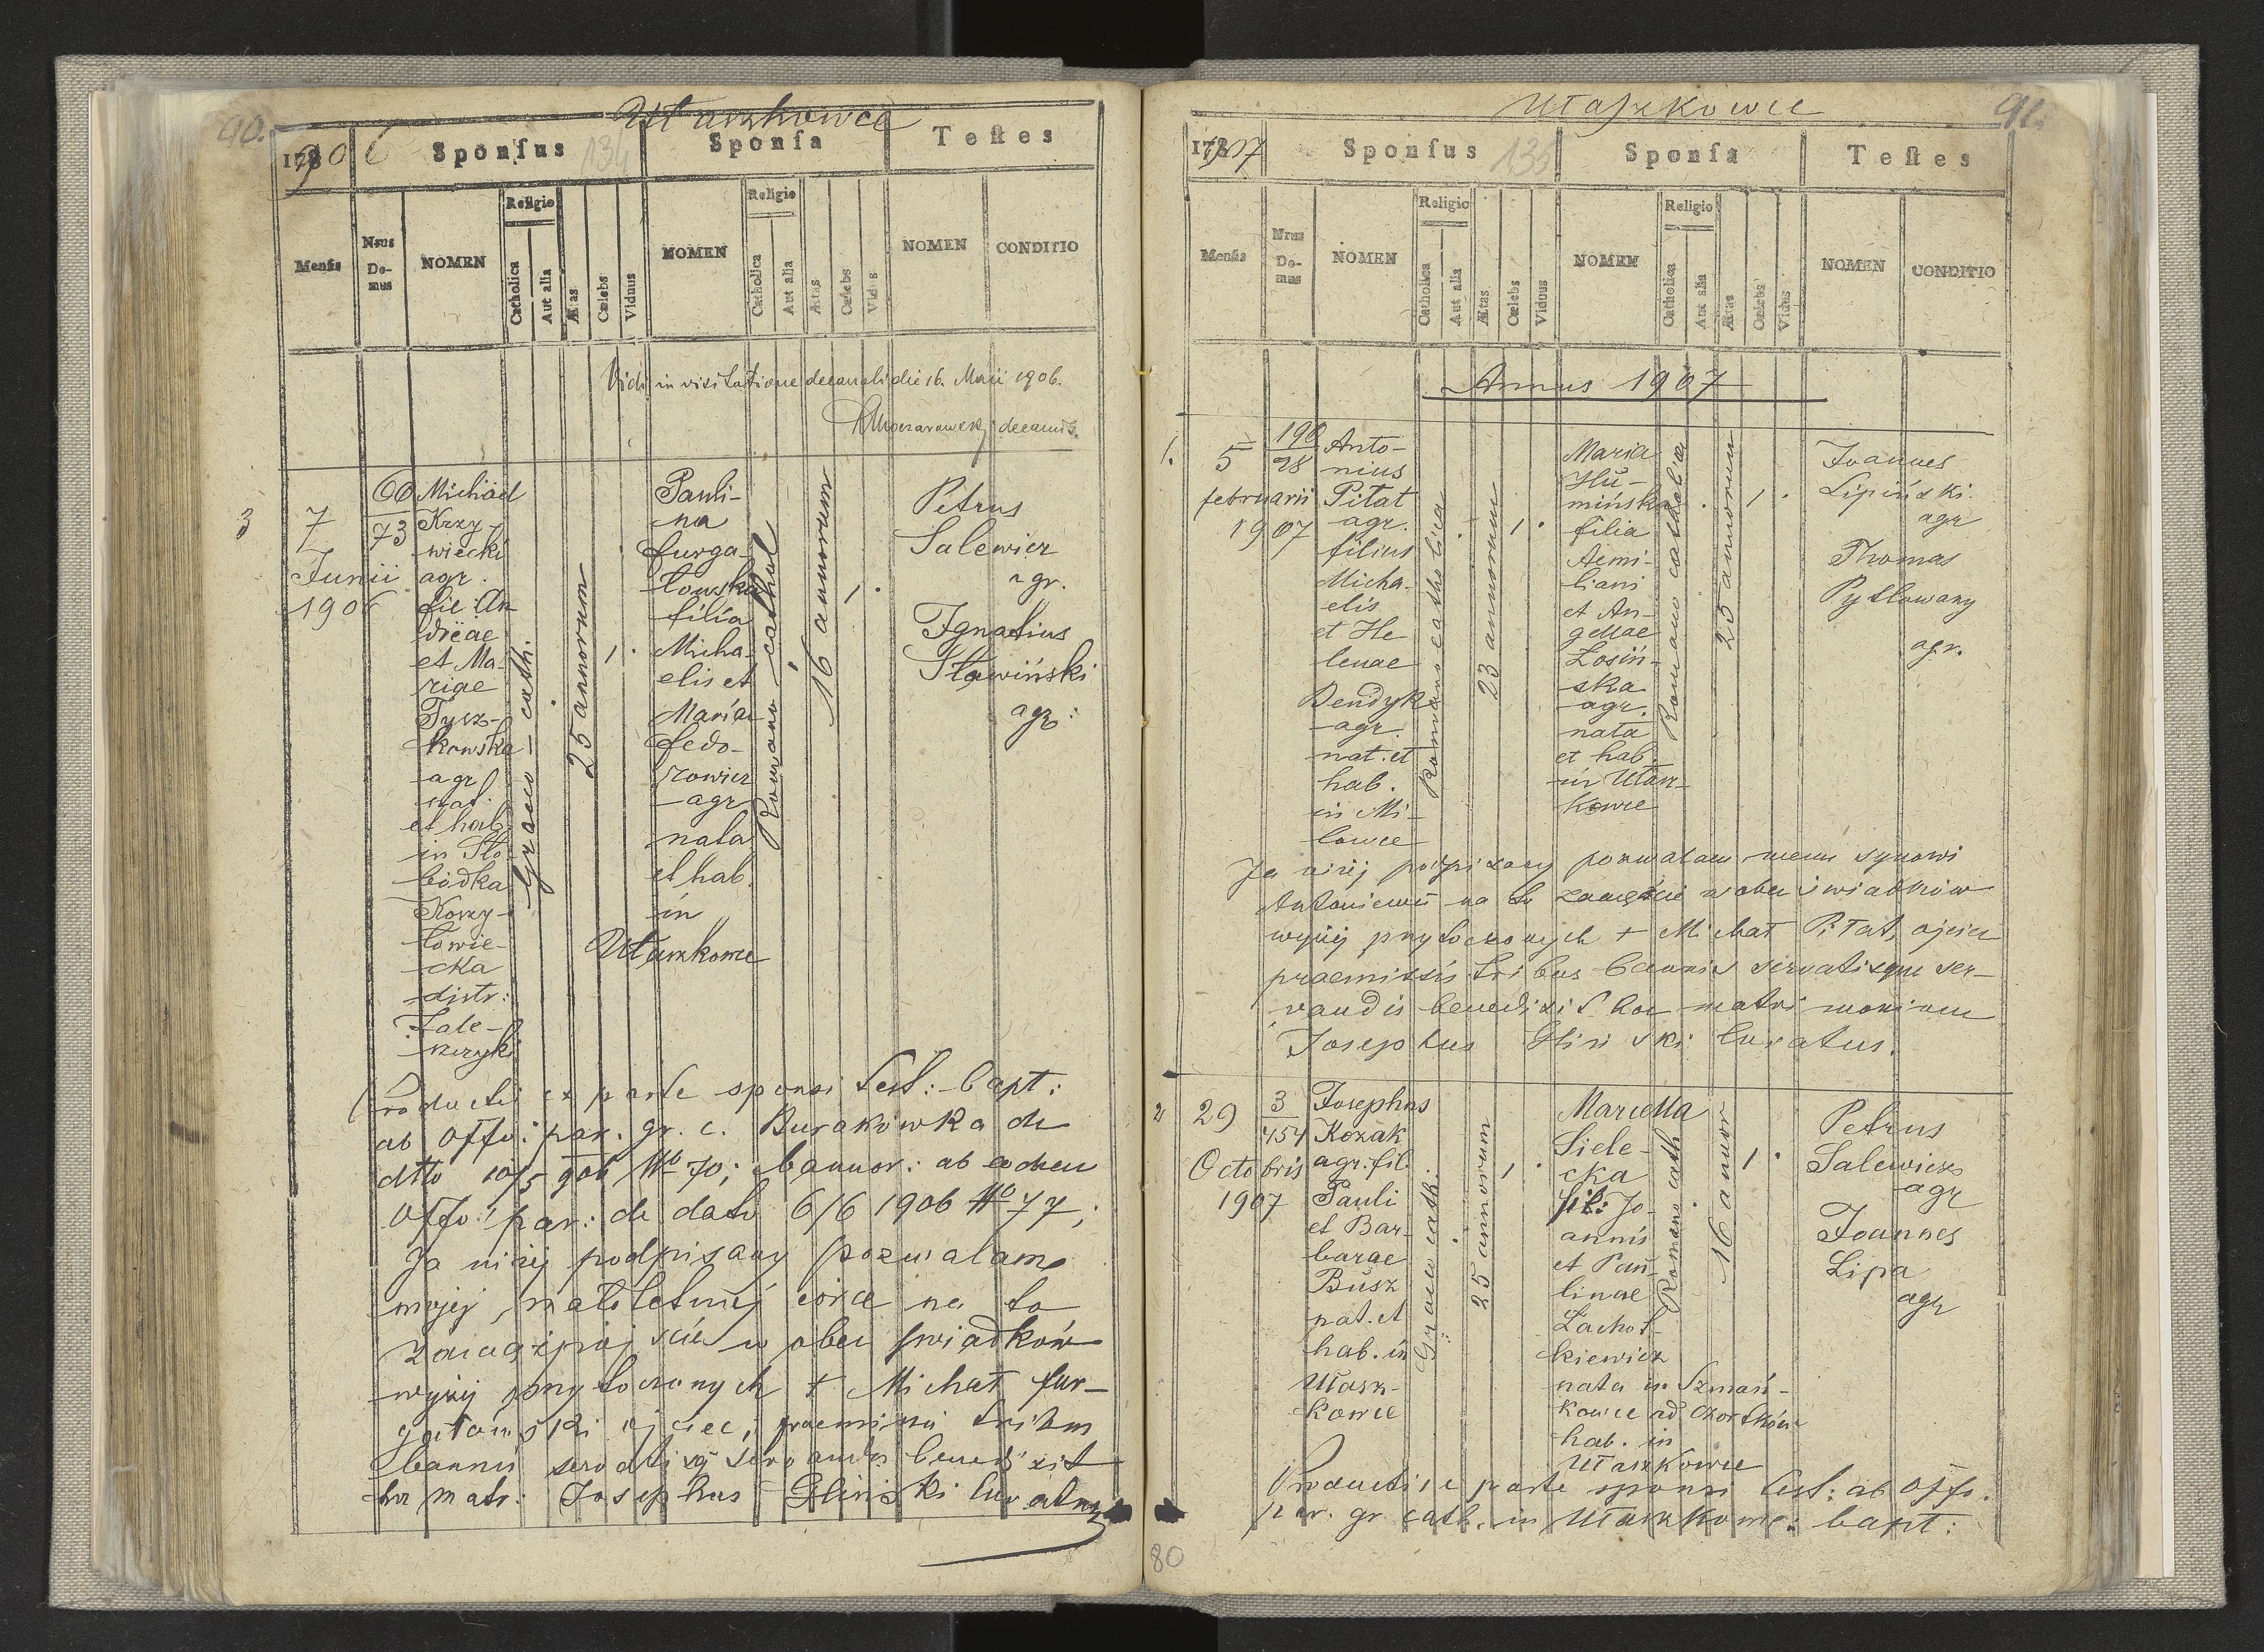 90.
Ułaszkowce
1906
Sponsus
134
Sponsa
Testes
Mensis
Nrus Domus
NOMEN
Religio
Catholica
Aut alia
Ætas
Cœlebs
Viduus
NOMEN
Religio
Catholica
Aut alia
Ætas
Cœlebs
Vidus
NOMEN
CONDITIO
Vidi in visitatione decanali die 16. Maii 1906.
decanus.
3
7
Junii
1906
60
73
Michäel
Krzy-
wiecki
agr.
fil: An
dreae
et Ma-
riae
Tysz-
kowska
agr
nat.
et hab
in Sło-
bódka
Koszy-
łowie-
cka
distr:
Zale-
szczyki
Graeco-cath.
25 annorum
1.
Pauli-
na
Furga-
łowska
filia
Micha-
elis et
Maria
Fedo-
rowicz
agr
nata
et hab.
in
Ułaszkowce
Romano cathol
16 annorum
1.
Petrus
Salewicz
agr.
Ignatius
Sławiński
agr:
Productis ex parte sponsi test: bapt:
ab Offo: par. gr. c. Burakówka de
dtto 10/5 906 No 70; bannor: ab eodem
Offo: par: de dato 6/6 1906 No 77;
Ja niżej podpisany pozwalam
mojej małoletniej córce na to
zamążpójście w obec świadków
wyżej przytoczonych + Michał Fur-
gałowski ojciec; praemissis tribus
bannis servatisq servandis benedixit
hoc matr: Josephus Gliński Curatus
91.
Ułaszkowce
1907
Sponsus
135
Sponsa
Testes
Mensis
Nrus Domus
NOMEN
Religio
Catholica
Aut alia
Ætas
Cœlebs
Viduus
NOMEN
Religio
Catholica
Aut alia
Ætas
Cœlebs
Vidus
NOMEN
CONDITIO
Annus 1907
1.
5
februarii
1907
190
28
Anto-
nius
Pitat
agr.
filius
Micha-
elis
et He
lenae
Dendyk
agr.
nat. et
hab.
in Mi-
łowce
Romano catholica
23 annorum
1.
Maria
Hu-
mińska
filia
Aemi-
liani
et An-
gellae
Łosiń-
ska
agr.
nata
et hab.
in Ułasz-
kowce
Romano catholica
25 annorum
1.
Joannes
Lipiński
agr
Thomas
Pytlowany
agr.
Ja niżej podpisany pozwalam memu synowi
Antoniemu na to zamęście w obec świadków
wyżej przytoczonych + Michał Pitat, ojciec
praemissis tribus bannis servatisque ser-
vandis benedixit hoc matrimonium
Josephus Gliński Curatus.
2
29
Octobris
1907
3
454
Josephus
Kozak
agr. fil.
Pauli
et Bar-
barae
Busz
nat. et
hab. in
Ułasz-
kowce
Graeco cath.
25 annorum
1.
Mariella
Siele-
cka
fil: Jo-
annis
et Pau-
linae
Zachot-
kiewicz
nata in Szmań-
kowce ad Czortków
hab. in
Ułaszkowce
Romano cath
16 annor
1.
Petrus
Salewicz
agr
Joannes
Lipa
agr
Productis e parte sponsi test: ab Offo.
par. gr cath. in Ułaszkowce: bapt:
80